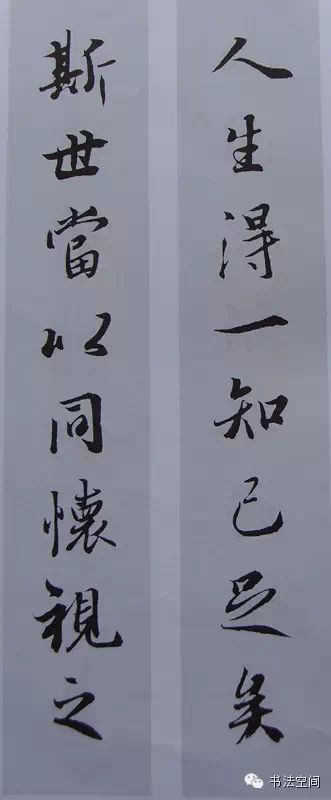 人生得一知己足矣
斯世當以同懷視之
书法空间